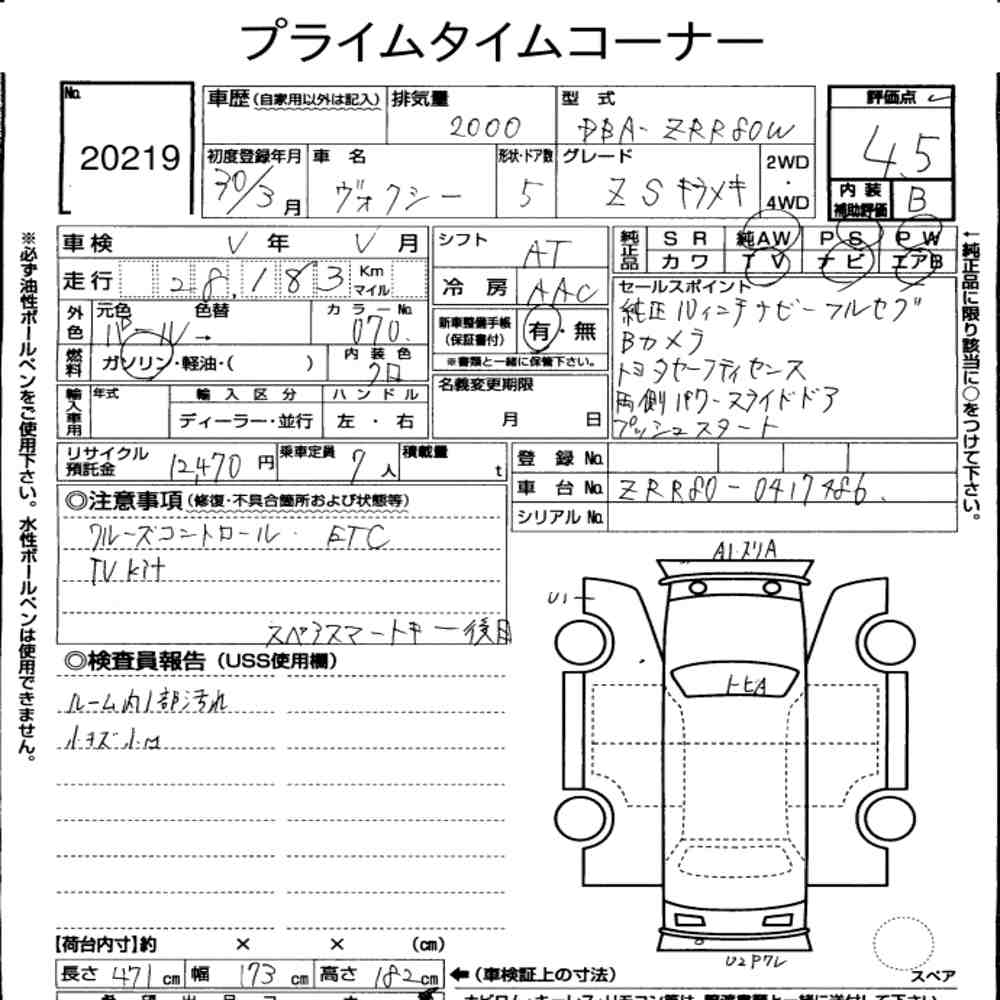 プライムタイムコーナー
No.
20219
車歴(自家用以外は記入)
排気量
2000
型 式
DBA-ZRR80W
評価点
4.5
初度登録年月
30/3月
車 名
ヴォクシー
形状・ドア数
5
グレード
ZSキラメキ
2WD
・
4WD
内装
補助評価
B
※必ず油性ボールペンをご使用下さい。水性ボールペンは使用できません。
車検 年 月
走行 28,183 Km
マイル
シフト AT
冷房 AAC
純正品
SR 純AW PS PW
カワ TV ナビ エアB
←純正品に限り該当に○をつけて下さい。
外色
元色 色替
パール →
カラーNo.
070
新車整備手帳
(保証書付)
有・無
※書類と一緒に保管下さい。
燃料
ガソリン・軽油・( )
内装色
クロ
セールスポイント
純正10インチナビーフルセグ
Bカメラ
トヨタセーフティセンス
両側パワースライドドア
プッシュスタート
輸入車用
年式
輸入区分
ディーラー・並行
ハンドル
左・右
名義変更期限
月 日
リサイクル
預託金
12,470円
乗車定員
7人
積載量
t
登録No.
車台No. ZRR80-0417486
シリアルNo.
◎注意事項(修復・不具合箇所および状態等)
クルーズコントロール・ETC
TV kit
スペアスマートキー後日
◎検査員報告(USS使用欄)
ルーム内1部汚れ
小キズ小凹
A1・スリA
U1
トビA
U2Pワレ
スペア
【荷台内寸】約 × × (cm)
長さ 471cm 幅 173cm 高さ 182cm
←(車検証上の寸法)